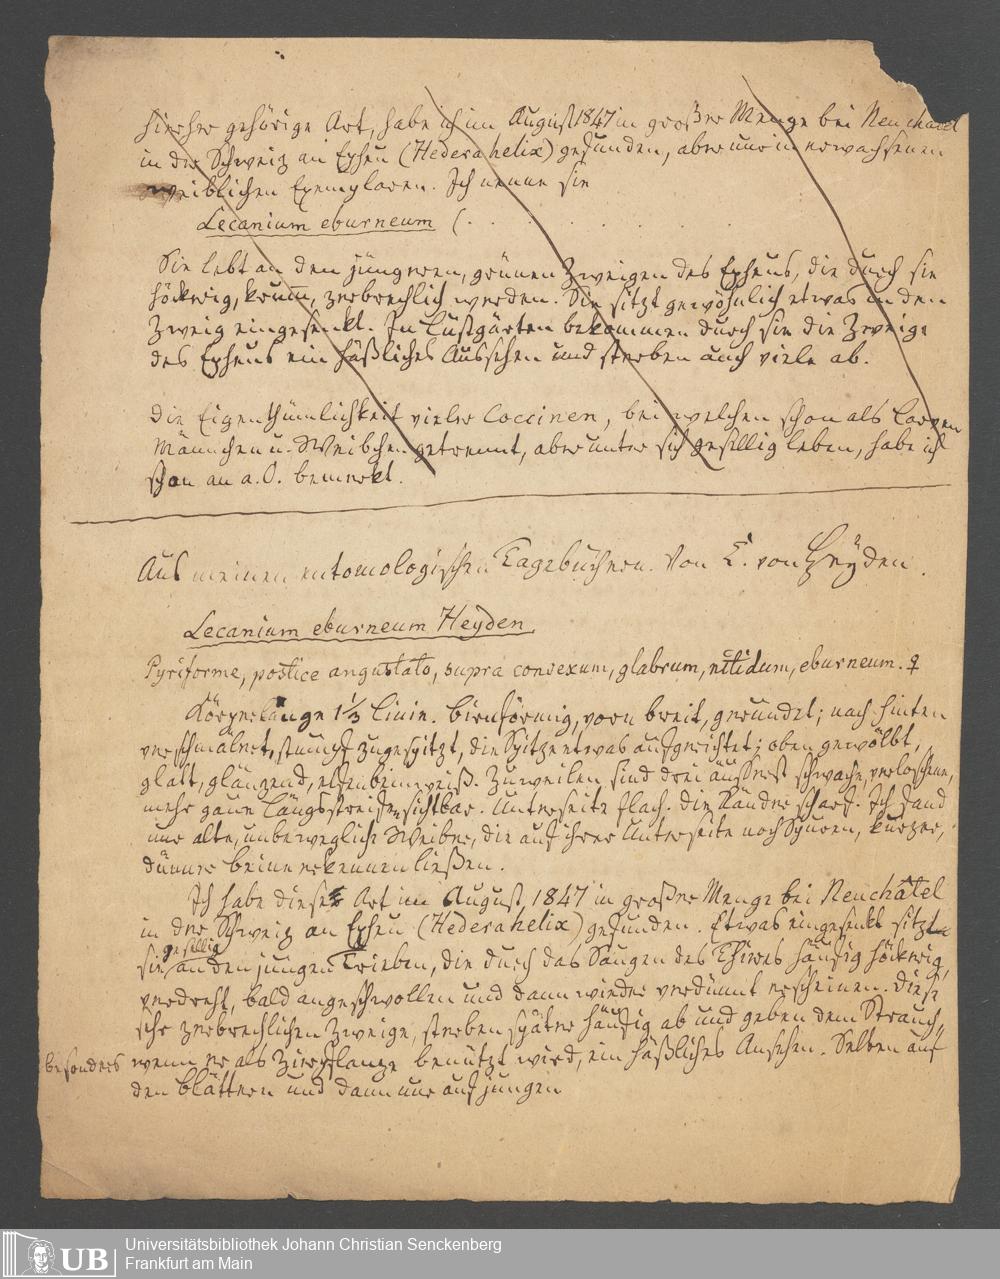 hierher gehörige Art, habe ich im August 1847 in großer Menge bei Neuchatel
in der Schweiz an Epheu (Hedera helix) gefunden, aber nur in erwachsenen
weiblichen Exemplaren. Ich nenne sie
Lecanium eburneum (. . . . . . .
Sie lebt an den jüngeren, grünen Zweigen des Epheus, die durch sie
höckrig, krum̅, zerbrechlich werden. Sie sitzt gewöhnlich etwas in den
Zweig eingesenkt. In Lustgärten bekommen durch sie die Zweige
des Epheus ein häßliches Aussehen und sterben auch viele ab.
Die Eigenthümlichkeit vieler Coccinen, bei welchen schon als Larven
Männchen u. Weibchen getrennt, aber unter sich gesellig leben, habe ich
schon an a. O. bemerkt.
Aus meinen entomologischen Tagebüchern. Von C. von Heyden.
Lecanium eburneum Heyden.
Pyriforme, postice angustato, supra convexum, glabrum, nitidum, eburneum. ♀
Körperlänge 1⅓ Linin. birnförmig, vorn breit, gerundet; nach hinten
verschmälert, stumpf zugespitzt, die Spitze etwas aufgerichtet; oben gewölbt,
glatt, glänzend, elfenbeinweiß. Zuweilen sind drei äusserst schwache, verloschene,
mehr graue Längsstreifen sichtbar. Unterseite flach. Die Ränder scharf. Ich fand
nur alte, unbewegliche Weiber, die auf ihrer Unterseite noch Spuren, kurzer,
dünner Beine erkennen ließen.
Ich habe diese Art im August 1847 in großer Menge bei Neuchâtel
in der Schweiz an Epheu (Hedera helix) gefunden. Etwas eingesenkt sitzen
sie gesellig an den jungen Trieben, die durch das Saugen des Thieres häufig höckrig,
verdreht, bald angeschwollen und dann wieder verdünnt erscheinen. Diese
sehr zerbrechlichen Zweige, sterben später häufig ab und geben dem Strauch,
besonders wenn er als Zierpflanze benützt wird, ein häßliches Ansehen. Selten auf
den Blättern und dann nur auf jungen
UB Universitätsbibliothek Johann Christian Senckenberg
Frankfurt am Main